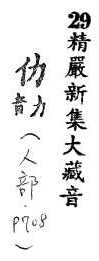 29精嚴新集大藏音
仂音力（人部．p708）